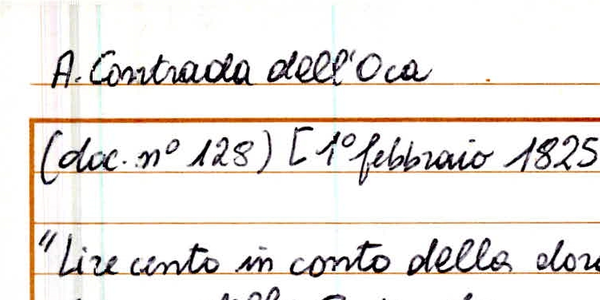 A. Contrada dell'Oca
(doc. n° 128) [1° febbraio 1825
"Lire cento in conto della